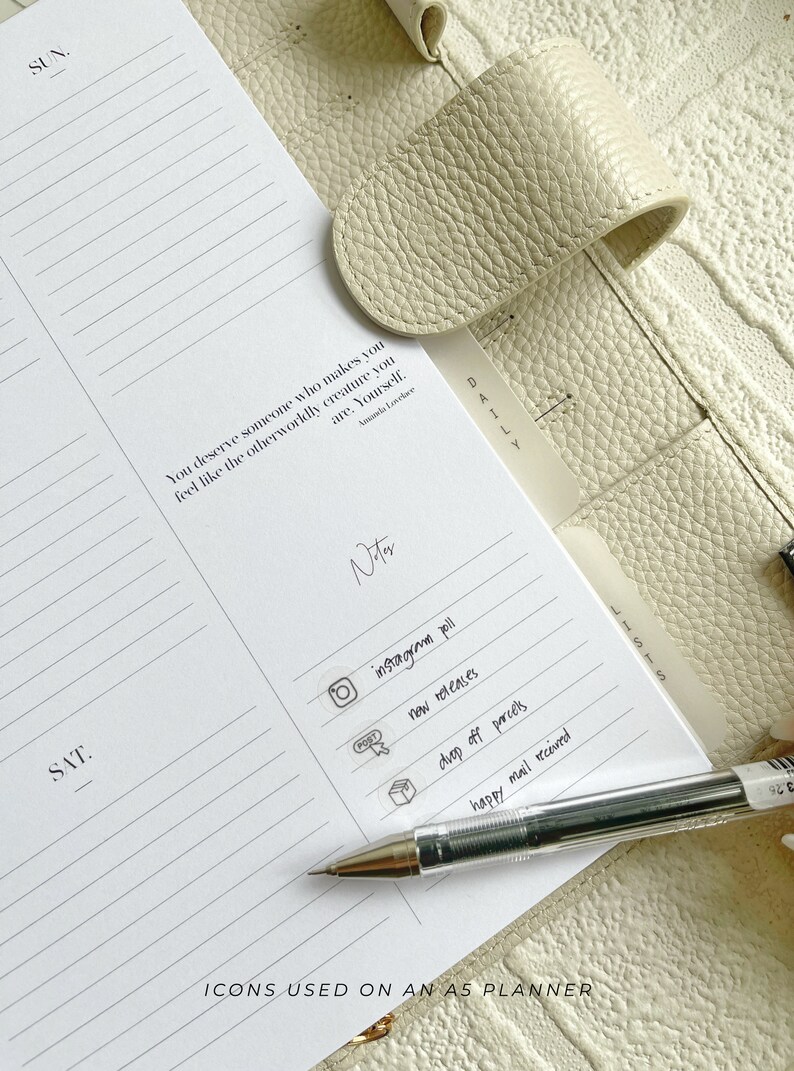 SUN.
You deserve someone who makes you
feel like the otherworldly creature you
are. Yourself.
Amanda Lovelace
DAILY
Notes
LISTS
instagram poll
new releases
POST
drop off parcels
happy mail received
SAT.
ICONS USED ON AN A5 PLANNER